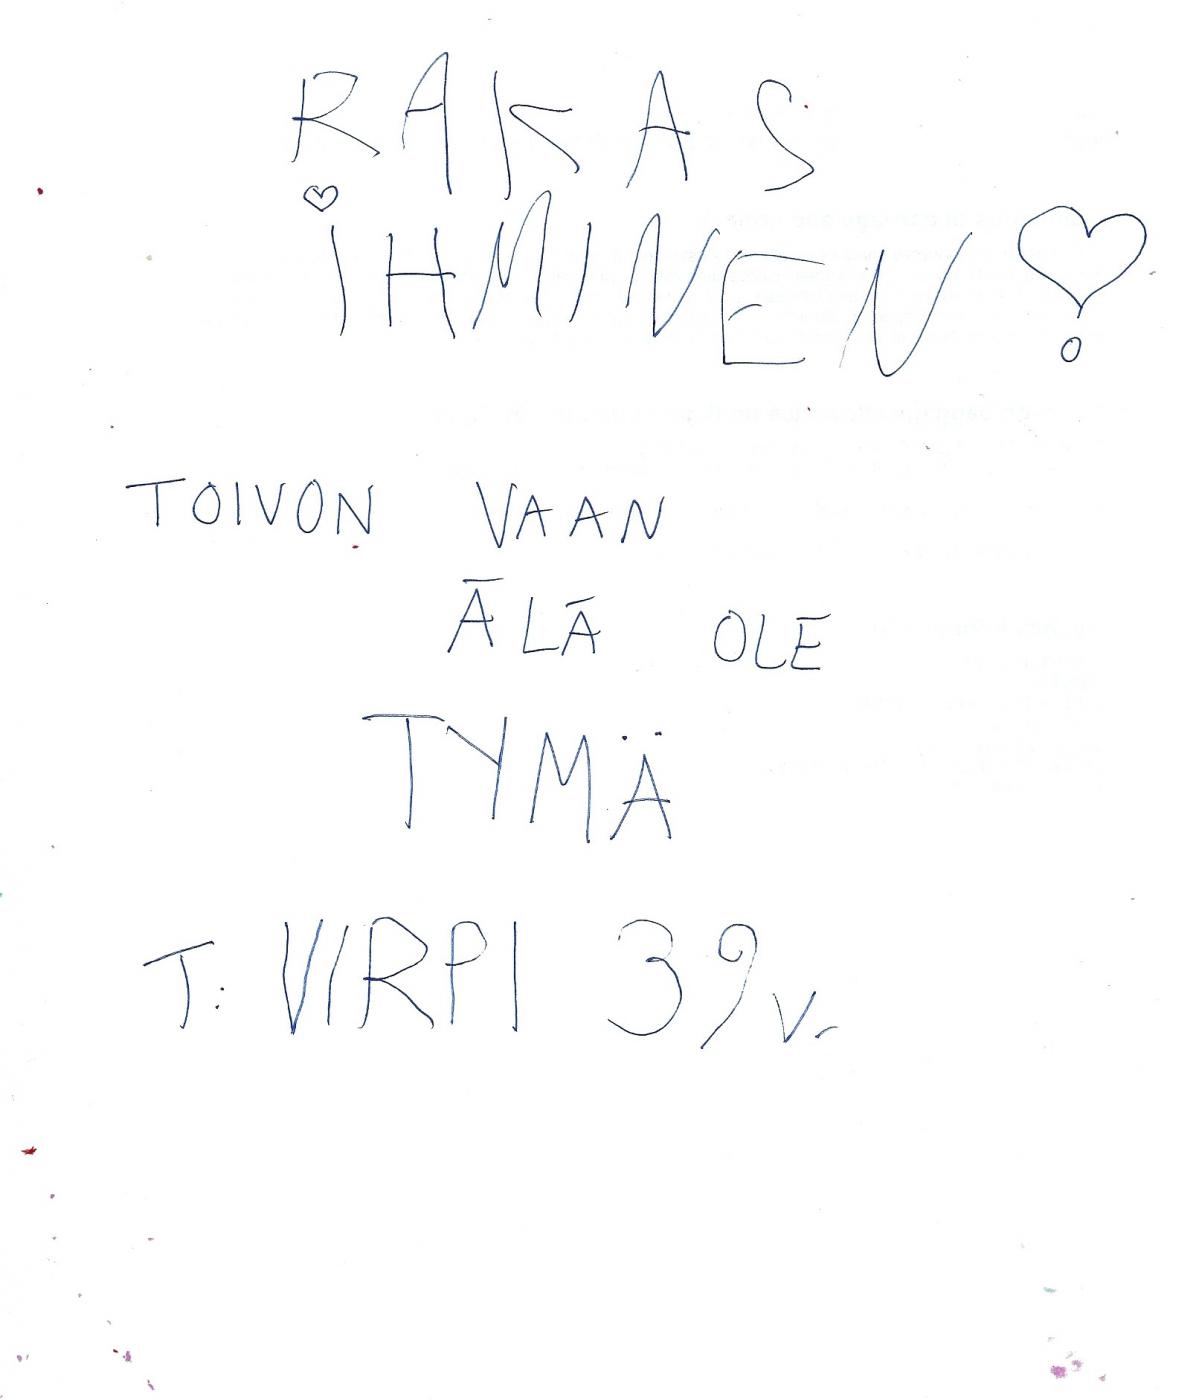 RAKAS
IHMINEN
TOIVON VAAN
ÄLÄ OLE
TYMÄ
T: VIRPI 39v.